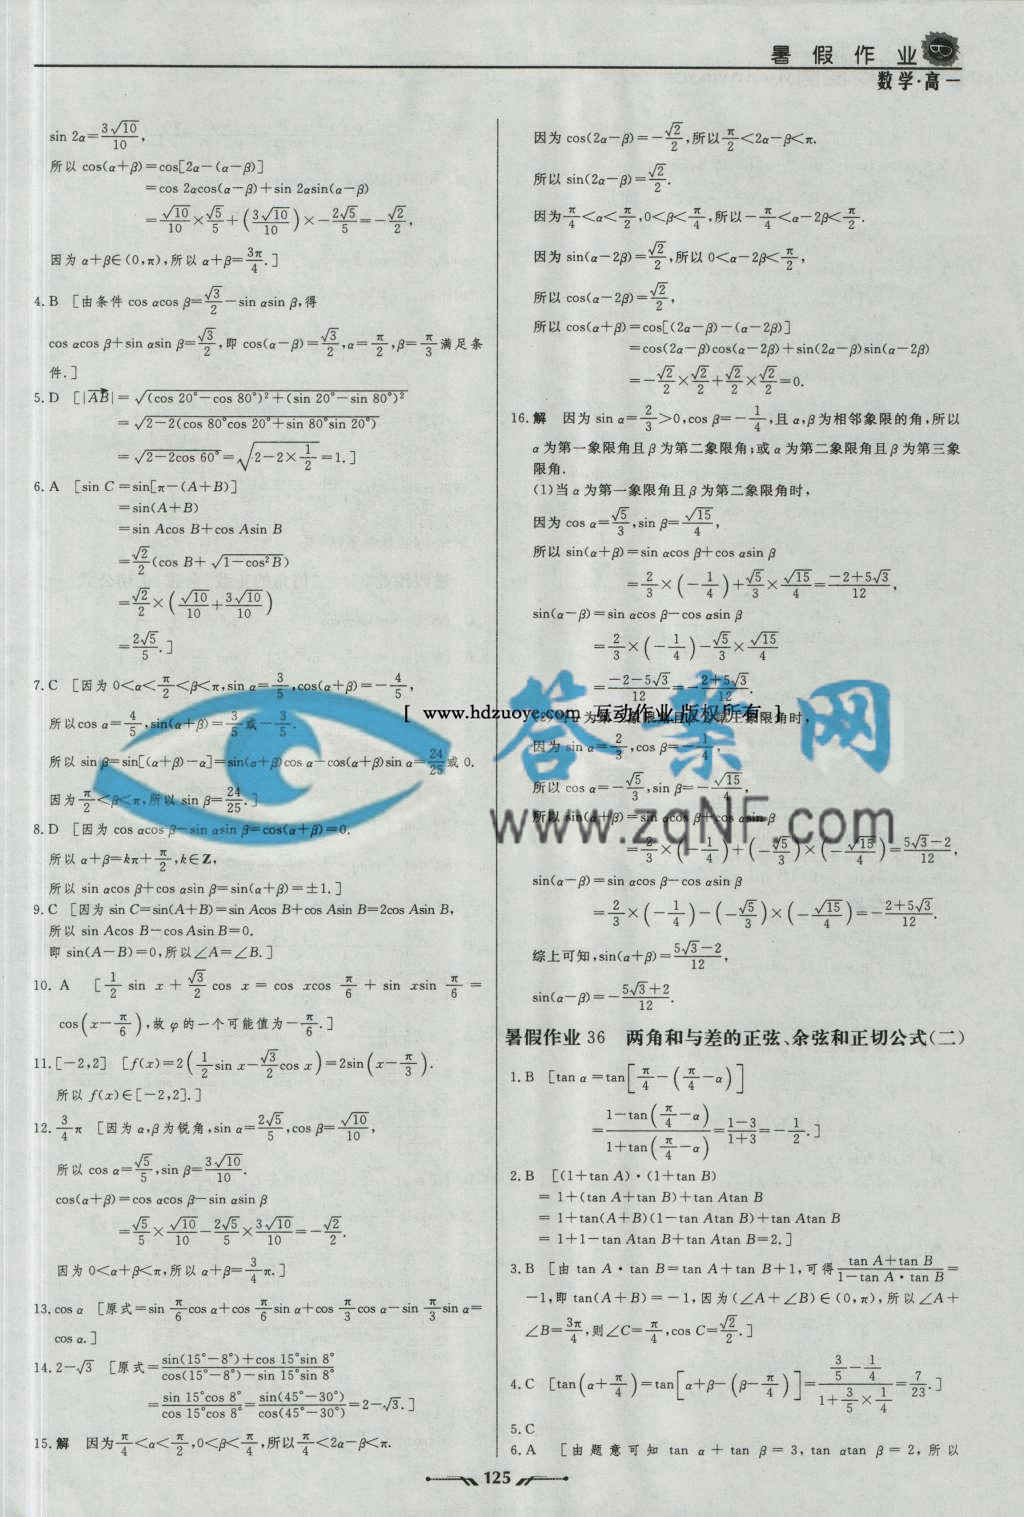 暑假作业
数学·高一
sin 2α=3√10/10,
所以 cos(α+β)=cos[2α-(α-β)]
=cos 2αcos(α-β)+sin 2αsin(α-β)
=√10/10×√5/5+(3√10/10)×-2√5/5=-√2/2,
因为 α+β∈(0,π),所以 α+β=3π/4.]
4.B [由条件 cos αcos β=√3/2-sin αsin β,得
cos αcos β+sin αsin β=√3/2,即 cos(α-β)=√3/2,α=π/2,β=π/3满足条
件.]
5.D [|AB|=√(cos 20°-cos 80°)²+(sin 20°-sin 80°)²
=√2-2(cos 80°cos 20°+sin 80°sin 20°)
=√2-2cos 60°=√2-2×1/2=1.]
6.A [sin C=sin[π-(A+B)]
=sin(A+B)
=sin Acos B+cos Asin B
=√2/2(cos B+√1-cos²B)
=√2/2×(√10/10+3√10/10)
=2√5/5.]
7.C [因为 0<α<π/2<β<π,sin α=3/5,cos(α+β)=-4/5,
所以cos α=4/5,sin(α+β)=3/5或-3/5.
所以 sin β=sin[(α+β)-α]=sin(α+β)cos α-cos(α+β)sin α=24/25或 0.
因为π/2<β<π,所以 sin β=24/25.]
8.D [因为 cos αcos β-sin αsin β=cos(α+β)=0.
所以 α+β=kπ+π/2,k∈Z,
所以 sin αcos β+cos αsin β=sin(α+β)=±1.]
9.C [因为 sin C=sin(A+B)=sin Acos B+cos Asin B=2cos Asin B,
所以 sin Acos B-cos Asin B=0.
即 sin(A-B)=0,所以∠A=∠B.]
10. A [1/2 sin x+√3/2 cos x=cos xcos π/6+sin xsin π/6=
cos(x-π/6),故 φ的一个可能值为-π/6.]
11.[-2,2] [f(x)=2(1/2sin x-√3/2cos x)=2sin(x-π/3).
所以 f(x)∈[-2,2].]
12.3/4π [因为 α,β为锐角,sin α=2√5/5,cos β=√10/10,
所以 cos α=√5/5,sin β=3√10/10.
cos(α+β)=cos αcos β-sin αsin β
=√5/5×√10/10-2√5/5×3√10/10=-√2/2.
因为 0<α+β<π,所以 α+β=3/4π.]
13.cos α [原式=sin π/6cos α+cos π/6sin α+cos π/3cos α-sin π/3sin α=
cos α.]
14.2-√3 [原式=sin(15°-8°)+cos 15°sin 8°/cos(15°-8°)-sin 15°sin 8°
=sin 15°cos 8°/cos 15°cos 8°=sin(45°-30°)/cos(45°-30°)=2-√3.]
15.解 因为π/4<α<π/2,0<β<π/4,所以π/4<2α-β<π.
因为 cos(2α-β)=-√2/2,所以π/2<2α-β<π.
所以 sin(2α-β)=√2/2.
因为π/4<α<π/2,0<β<π/4,所以-π/4<α-2β<π/2.
因为 sin(α-2β)=√2/2,所以 0<α-2β<π/2,
所以 cos(α-2β)=√2/2,
所以 cos(α+β)=cos[(2α-β)-(α-2β)]
=cos(2α-β)cos(α-2β)+sin(2α-β)sin(α-2β)
=-√2/2×√2/2+√2/2×√2/2=0.
16.解 因为 sin α=2/3>0,cos β=-1/4,且 α,β为相邻象限的角,所以
α为第一象限角且 β为第二象限角;或 α为第二象限角且 β为第三象
限角.
(1)当 α为第一象限角且 β为第二象限角时,
因为 cos α=√5/3,sin β=√15/4,
所以 sin(α+β)=sin αcos β+cos αsin β
=2/3×(-1/4)+√5/3×√15/4=-2+5√3/12,
sin(α-β)=sin αcos β-cos αsin β
=2/3×(-1/4)-√5/3×√15/4
=-2-5√3/12=-2+5√3/12.
[ www.hdzuoye.com 互动作业 版权所有 ]
答案网
www.zqNF.com
因为 sin α=2/3,cos β=-1/4,
所以 cos α=-√5/3,sin β=-√15/4,
所以 sin(α+β)=sin αcos β+cos αsin β
=2/3×(-1/4)+(-√5/3)×(-√15/4)=5√3-2/12,
sin(α-β)=sin αcos β-cos αsin β
=2/3×(-1/4)-(-√5/3)×(-√15/4)=-2+5√3/12.
综上可知,sin(α+β)=5√3-2/12,
sin(α-β)=-5√3+2/12.
暑假作业 36 两角和与差的正弦、余弦和正切公式(二)
1.B [tan α=tan[π/4-(π/4-α)]
=1-tan(π/4-α)/1+tan(π/4-α)=1-3/1+3=-1/2.]
2.B [(1+tan A)·(1+tan B)
=1+(tan A+tan B)+tan Atan B
=1+tan(A+B)(1-tan Atan B)+tan Atan B
=1+1-tan Atan B+tan Atan B=2.]
3.B [由 tan A·tan B=tan A+tan B+1,可得tan A+tan B/1-tan A·tan B=
-1,即 tan(A+B)=-1,因为(∠A+∠B)∈(0,π),所以∠A+
∠B=3π/4,则∠C=π/4,cos C=√2/2.]
4.C [tan(α+π/4)=tan[α+β-(β-π/4)]=3/5-1/4/1+3/5×1/4=7/23.]
5.C
6.A [由题意可知 tan α+tan β=3,tan αtan β=2,所以
125